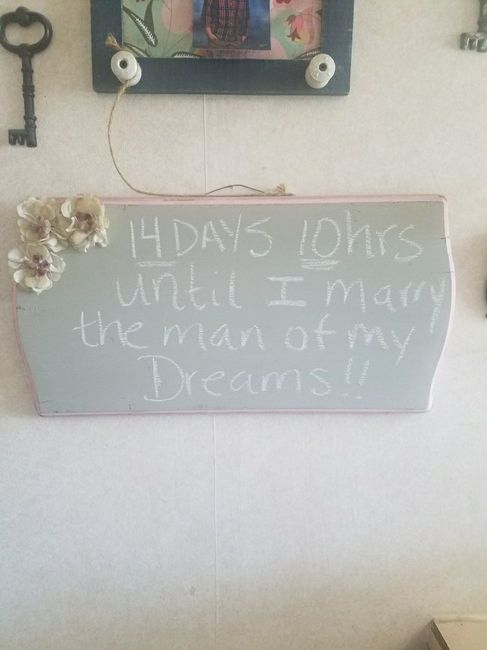 14 DAYS 10hrs
until I marry
the man of my
Dreams!!